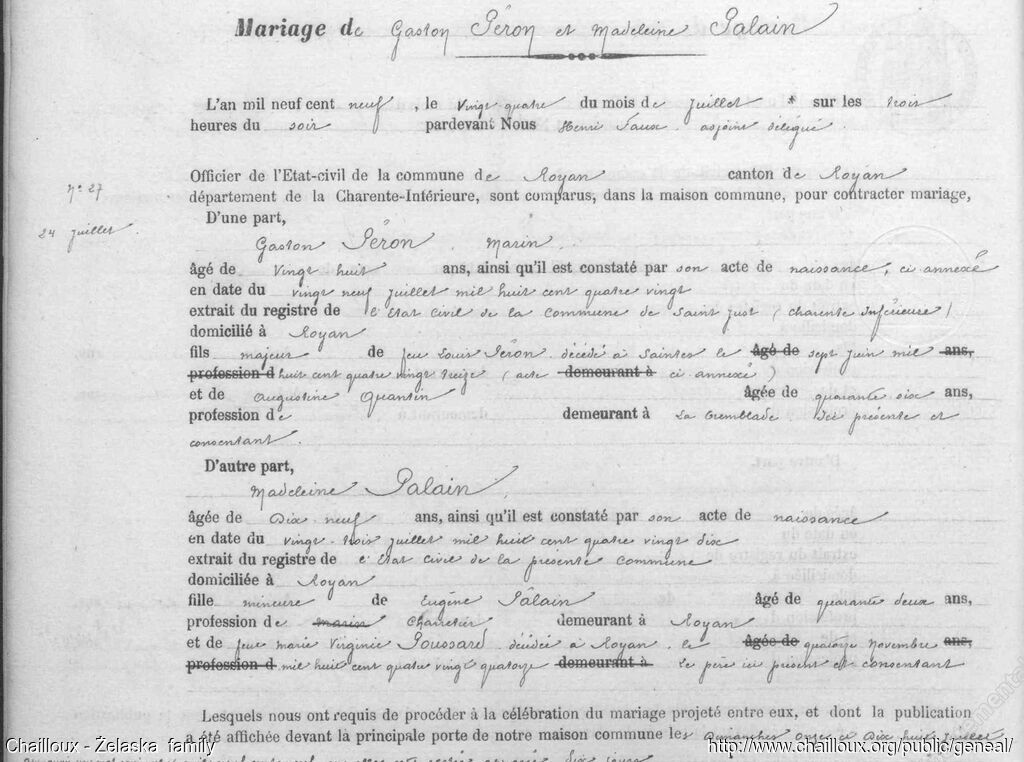 Mariage de Gaston Péron et Madeleine Palain
L'an mil neuf cent neuf, le vingt-quatre du mois de juillet * sur les trois
heures du soir pardevant Nous Henri Faux adjoint délégué
Officier de l'Etat-civil de la commune de Royan canton de Royan
n° 27
département de la Charente-Intérieure, sont comparus, dans la maison commune, pour contracter mariage,
D'une part,
24 juillet.
Gaston Péron Marin
âgé de vingt huit ans, ainsi qu'il est constaté par son acte de naissance, ci annexé
en date du vingt neuf juillet mil huit cent quatre vingt
extrait du registre de l'Etat Civil de la Commune de Saint Just (Charente Inférieure)
domicilié à Royan
fils majeur de feu Louis Péron décédé à Saintes le âgé de sept juin mil ans,
profession d huit cent quatre vingt treize (acte demeurant à ci annexé)
et de Augustine Quantin âgée de quarante six ans,
profession de demeurant à La Tremblade. Ici présente et
consentant.
D'autre part,
Madeleine Palain,
âgée de Dix neuf ans, ainsi qu'il est constaté par son acte de naissance
en date du vingt-trois juillet mil huit cent quatre vingt dix
extrait du registre de l'Etat Civil de la présente Commune
domiciliée à Royan
fille mineure de Eugène Palain âgé de quarante deux ans,
profession de marin Charretier demeurant à Royan
et de feue Marie Virginie Poussard décédé à Royan le Agée de quatorze Novembre ans,
profession d mil huit cent quatre vingt quatorze demeurant à le père ici présent et consentant
Lesquels nous ont requis de procéder à la célébration du mariage projeté entre eux, et dont la publication
a été affichée devant la principale porte de notre maison commune les Dimanches onze et Dix huit juillet
Chailloux - Żelaska family
http://www.chailloux.org/public/geneal/